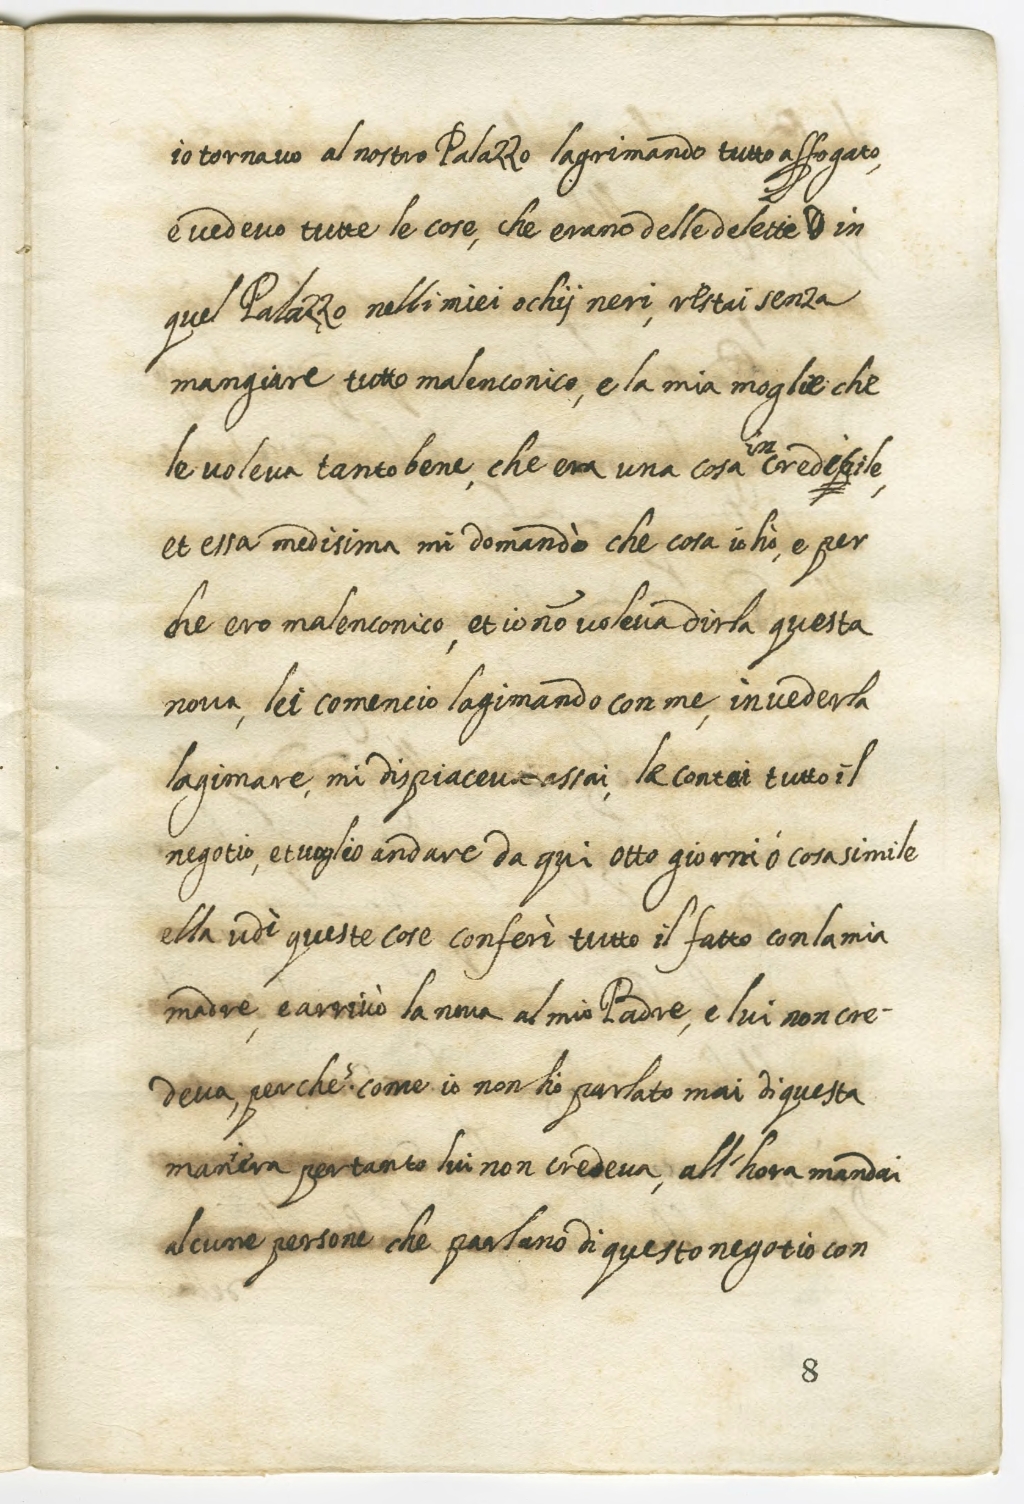 io tornauo al nostro Palazzo lagrimando tutto affogato,
e uedeuo tutte le cose, che erano delle delette in
quel Palazzo nelli miei ochij neri, restai senza
mangiare tutto malenconico, e la mia moglie che
le uoleua tanto bene, che era una cosa incredibile,
et essa medisima mi domandò che cosa io hò, e per
che ero malenconico, et io nõ uoleua dirla questa
noua, lei comencio lagimando con me, in uederla
lagimare, mi dispiaceua assai, le contai tutto il
negotio, et uoglio andare da qui otto giorni ó cosa simile
ella udì queste cose conferì tutto il fatto con la mia
madre, e arriuò la noua al mio Padre, e lui non cre-
deua, perche come io non hò parlato mai di questa
maniera pertanto lui non credeua, all'hora mandai
alcune persone che parlano di questo negotio con
8